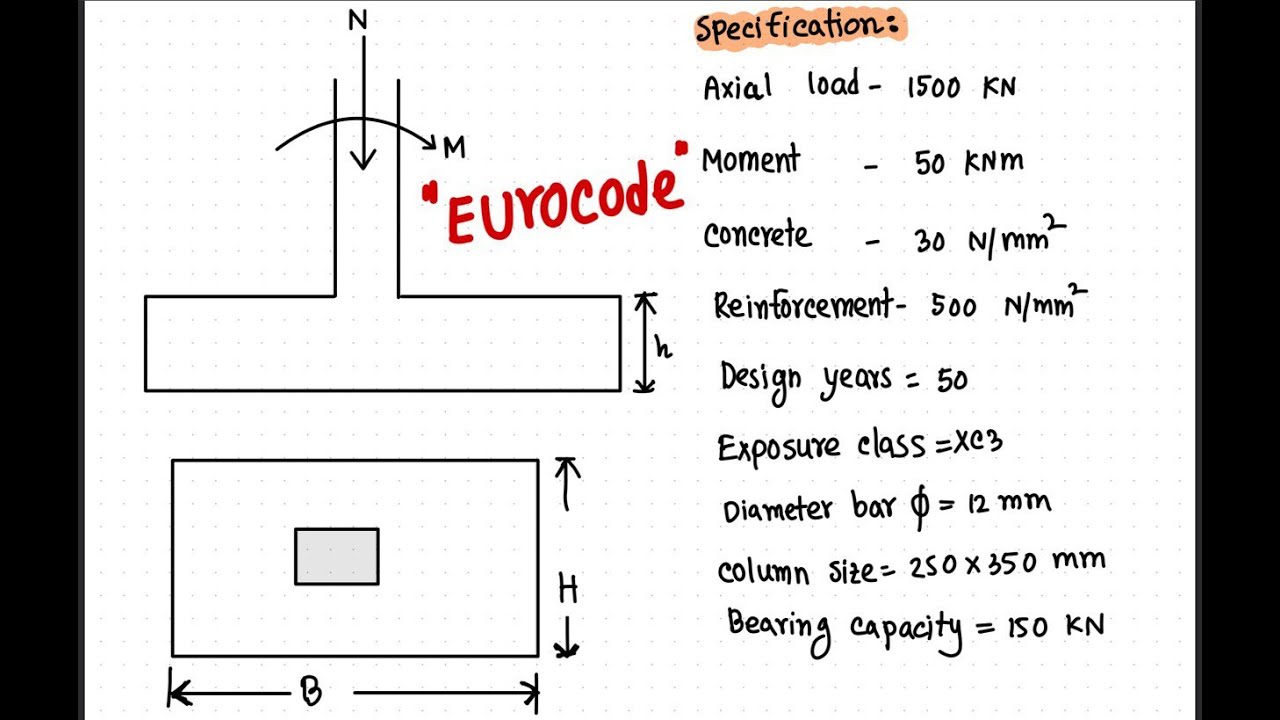 N
M
"EUrocode"
h
H
B
Specification:
Axial load - 1500 KN
Moment - 50 KNm
Concrete - 30 N/mm²
Reinforcement - 500 N/mm²
Design years = 50
Exposure class = XC3
Diameter bar ϕ = 12 mm
column size = 250 x 350 mm
Bearing capacity = 150 KN